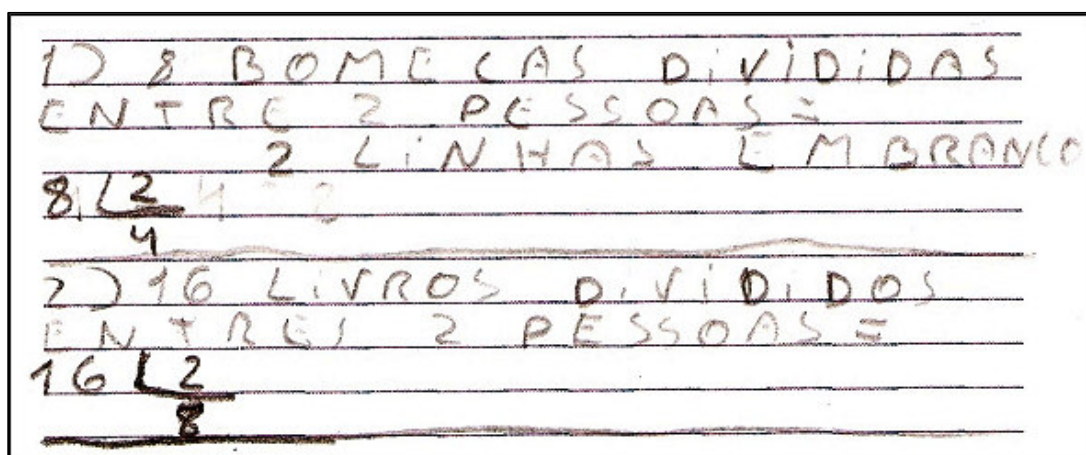 1) 8 BOMECAS DiViDiDAS
ENTRE 2 PESSOAS =
2 LiNHAS EMBRANCO
8 2
4
2) 16 LiVROS DiViDiDOS
ENTRES 2 PESSOAS =
16 2
8